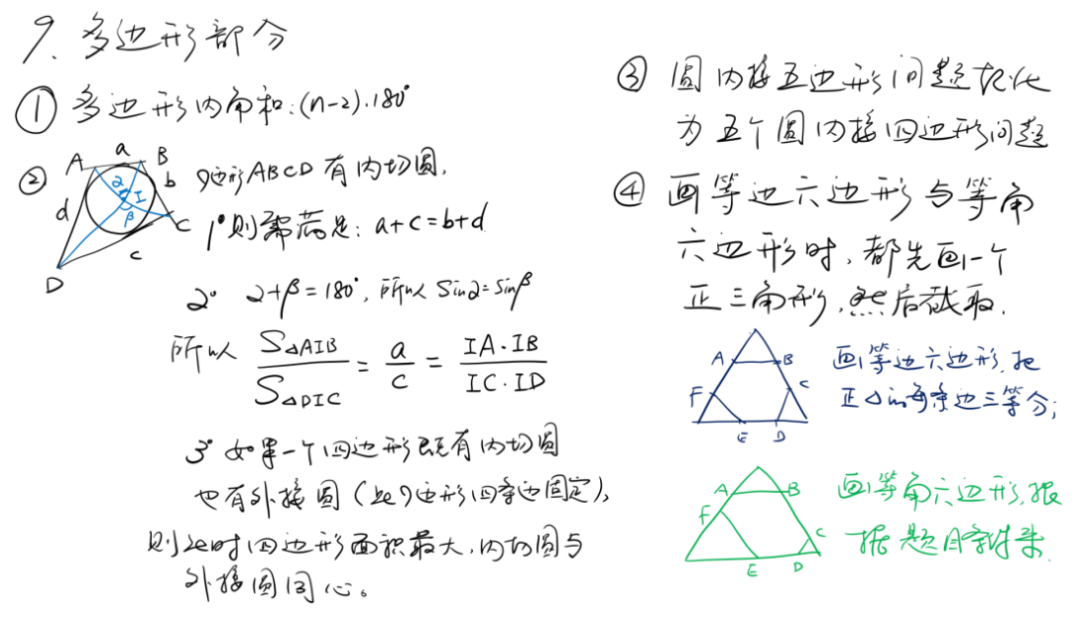 9. 多边形部分
① 多边形内角和:(n-2)·180°
②
A
a
B
b
2
I
β
d
C
c
D
四边形ABCD有内切圆.
1°则需满足: a+c=b+d
2° 2+β=180°, 所以 Sin2=Sinβ
所以 S△AIB / S△DIC = a / c = IA·IB / IC·ID
3° 如果一个四边形既有内切圆
也有外接圆(此四边形四条边固定),
则此时四边形面积最大,内切圆与
外接圆同心。
③ 圆内接五边形问题转化
为五个圆内接四边形问题
④ 画等边六边形与等角
六边形时,都先画一个
正三角形,然后截取.
A
B
F
C
E
D
画等边六边形,把
正△的每条边三等分;
A
B
F
C
E
D
画等角六边形,根
据题目条件来.